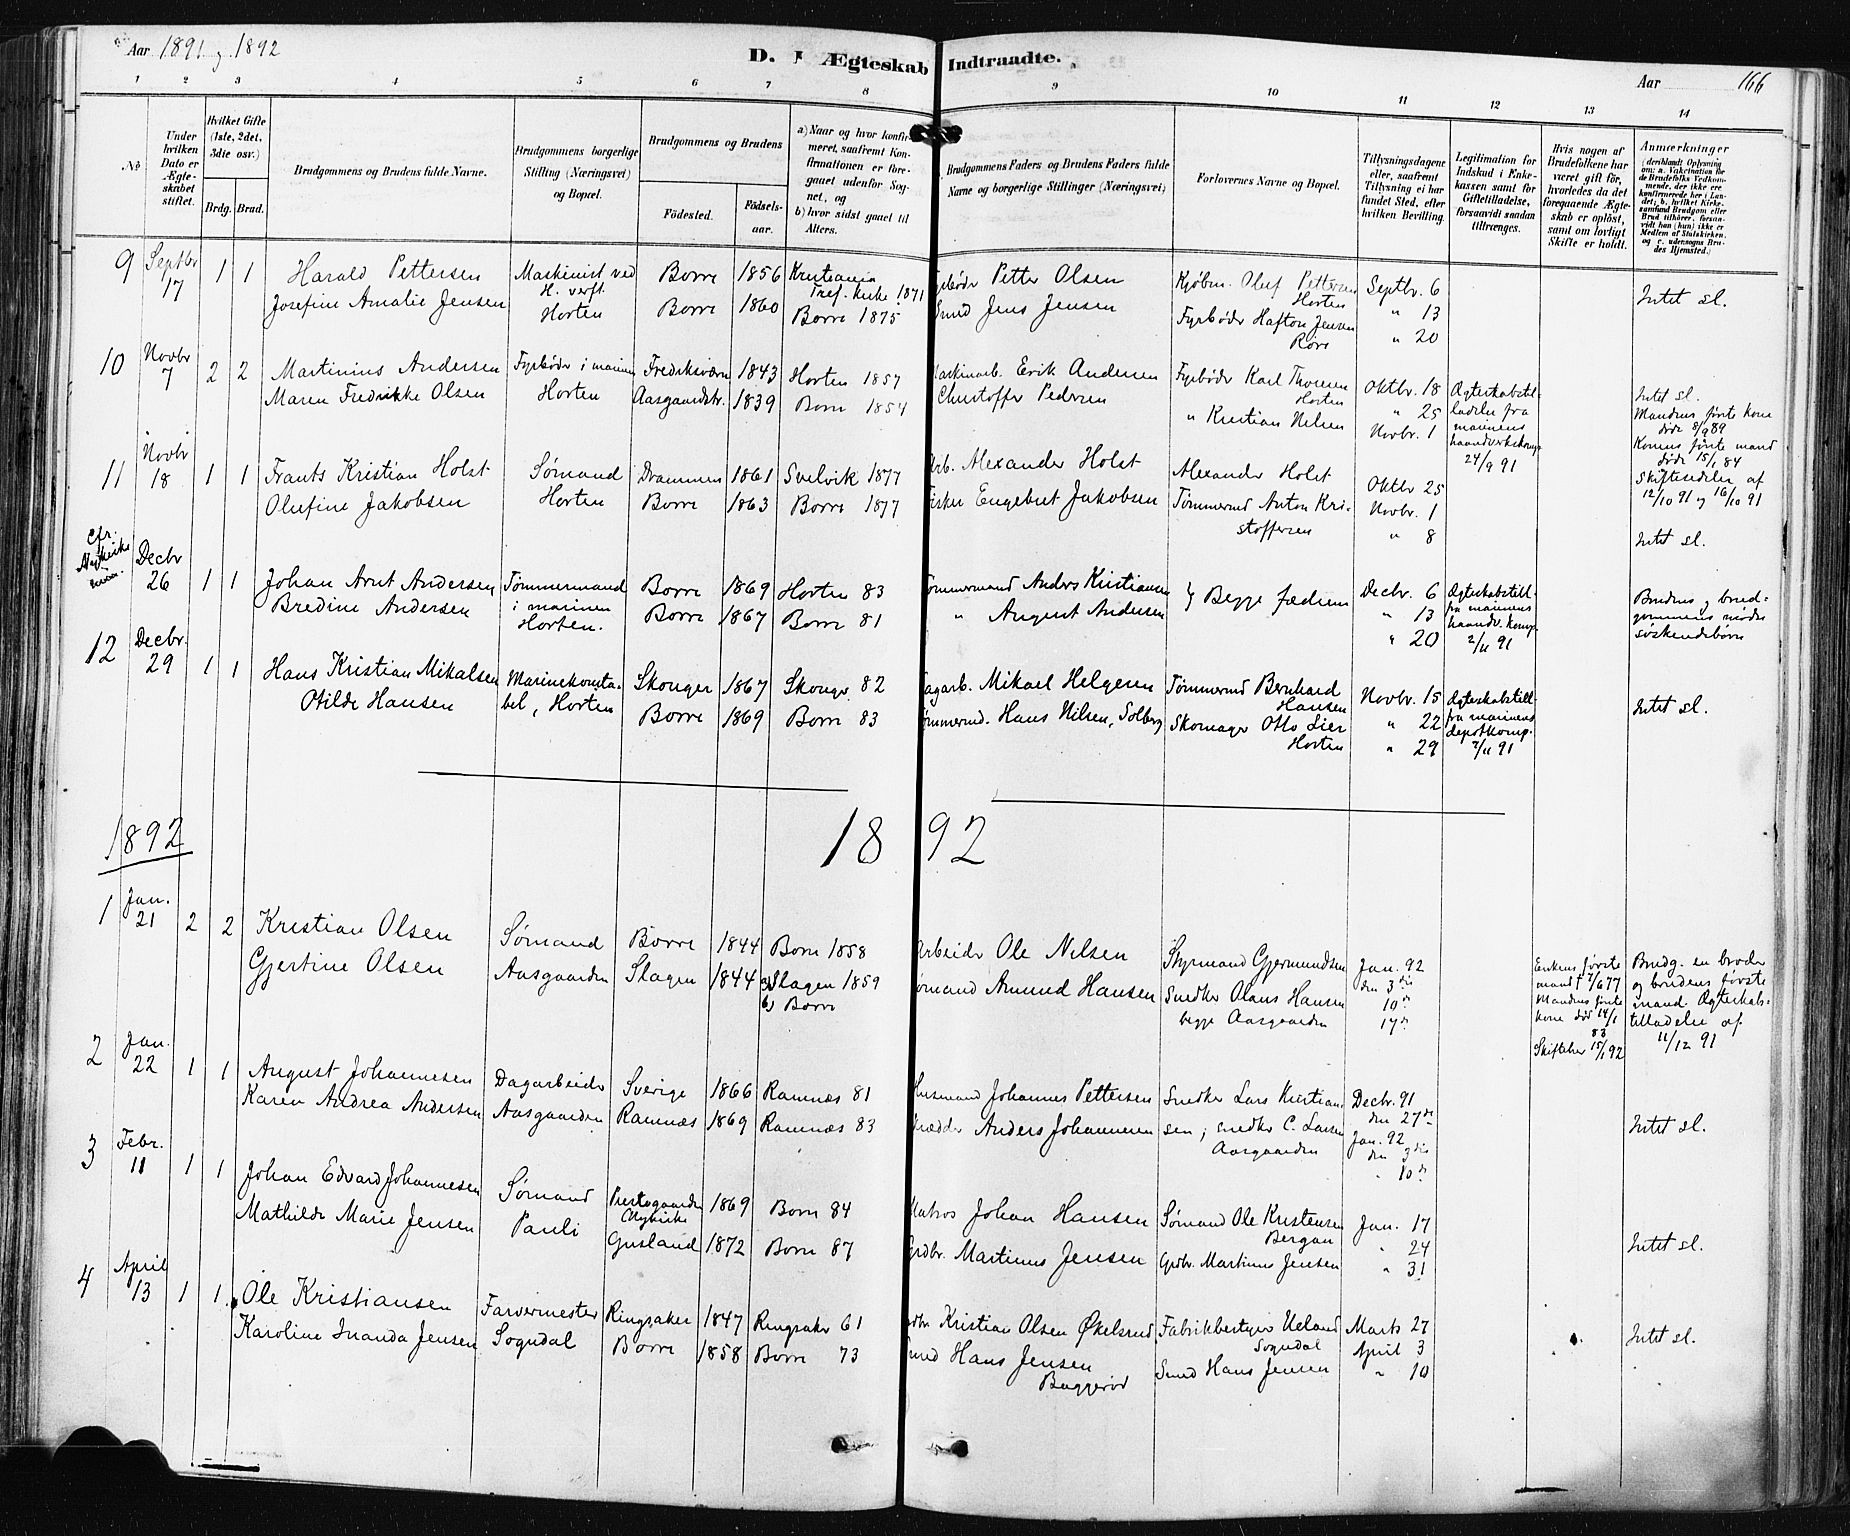 Aar 1891 og 1892
D. Ægteskab Indtraadte.
Aar 166
1 2 3 4 5 6 7 8 9 10 11 12 13 14
No
Under hvilken Dato er Ægteskabet stiftet.
Hvilket Gifte (1ste, 2det, 3die osv.)
Brdg. Brud.
Brudgommens og Brudens fulde Navne.
Brudgommens borgerlige Stilling (Næringsvei) og Bopæl.
Brudgommens og Brudens
Fødested. Fødselsaar.
a) Naar og hvor konfirmeret, saafremt Konfirmationen er foregaaet udenfor Sognet, og
b) hvor sidst gaaet til Alters.
Brudgommens Faders og Brudens Faders fulde Navne og borgerlige Stillinger (Næringsvei)
Forlovernes Navne og Bopæl.
Tillysningsdagene eller, saafremt Tillysning ei har fundet Sted, efter hvilken Bevilling.
Legitimation for Indskud i Enkekassen samt for Giftetilladelse, forsaavidt saadan tiltrænges.
Hvis nogen af Brudefolkene har været gift før, hvorledes da det foregaaende Ægteskab er opløst, samt om lovligt Skifte er holdt.
Anmærkninger
9 Septbr 17 1 1
Harald Pettersen Maskinist ved H. verft Borre 1856 Kristiania Tref. Kirke 1871 Petter Olsen Kjøbm. Oluf Pettersen Horten Septbr. 6
Josefine Amalie Jensen Horten Borre 1860 Borre 1875 Smed Jens Jensen Fyrbøder Hafton Jensen Røre " 13 " 20 Intet sl.
10 Novbr 7 2 2
Martinius Andersen Fyrbøder i marinen Fredriksværn 1843 Horten 1857 Erik Andersen Fyrbøder Karl Thoresen Horten Oktbr. 18
Maren Fredrikke Olsen Horten Aasgaardstr. 1839 Borre 1854 Christoffer Pedersen " Kristian Nilsen " 25 Novbr. 1
Ægteskabstilladelse fra marinens haandverkskomp. 24/9 91
Intet sl.
Mandens første kone døde 8/9 89
Konens første mand døde 15/1 84
Skifteseddel af 12/10 91 og 16/10 91
11 Novbr 18 1 1
Frants Kristian Holst Sømand Drammen 1861 Svelvik 1877 Arb. Alexander Holst Alexander Holst Oktbr 25
Olufine Jakobsen Horten Borre 1863 Borre 1877 Fisker Engebret Jakobsen Tømmermd Anton Kristoffersen Novbr. 1 " 8 Intet sl.
cfr. Nykirke
Decbr 26 1 1
Johan Arnt Andersen Tømmermand i marinen Horten. Borre 1869 Horten 83 Tømmermand Anders Kristiansen } Begge fædrene Decbr. 6
Bredine Andersen Borre 1867 Borre 81 " August Andersen " 13 " 20
Ægteskabstill. fra marinens haandv. komp. 2/11 91
Brudens og brudgommens mødre søskendebørn
12 Decbr. 29 1 1
Hans Kristian Mikalsen Marinekonstabel, Horten Skouger 1867 Skouger 82 Dagarb. Mikael Helgesen Tømmermd Bernhard Hansen Novbr. 15
Otilde Hansen Borre 1869 Borre 83 Tømmermd. Hans Nilsen, Solberg Skomager Otto Lier Horten " 22 " 29
Ægteskabstill. fra marinens depotkomp. 2/11 91
Intet sl.
1892
1892
1 Jan. 21 2 2
Kristian Olsen Sømand Borre 1844 Borre 1858 Arbeider Ole Nilsen Styrmand Gjermundsen Jan. 92
Gjertine Olsen Aasgaarden Slagen 1844 a) Slagen 1859 b) Borre Sømand Amund Hansen Snedker Olaus Hansen begge Aasgaarden den 3die 10de 17de
Enkens første mand † 7/6 77
Mandens første kone død 14/1 83
Skifteber 15/1 92
Brudg. en broder og brudens første mand Ægteskabstilladelse af 11/12 91
2 Jan. 22 1 1
August Johannesen Dagarbeider Sverige 1866 Ramnæs 81 Husmand Johannes Pettersen Snedker Lars Kristiansen, snedker C. Larsen Aasgaarden Decbr. 91 den 27de
Karen Andrea Andersen Aasgaarden Ramnæs 1869 Ramnæs 83 Skrædder Anders Johannesen Jan. 92 den 3die " 10de Intet sl.
3 Febr. 11 1 1
Johan Edvard Johannesen Sømand Prestegaarden Nykirke 1869 Borre 84 Matros Johan Hansen Sømand Ole Kristensen Bergan Jan. 17
Mathilde Marie Jensen Pauli Gusland 1872 Borre 87 Grdbr. Martinus Jensen Grdbr. Martinus Jensen " 24 " 31 Intet sl.
4 April 13 1 1
Ole Kristiansen Farvermester Ringsaker 1847 Ringsaker 61 Kristian Olsen Økelsrud Fabrikbestyrer Ueland Sogndal Marts 27
Karoline Inanda Jensen Sogndal Borre 1858 Borre 73 Smed Hans Jensen Buggerød Smed Hans Jensen April 3 " 10 Intet sl.